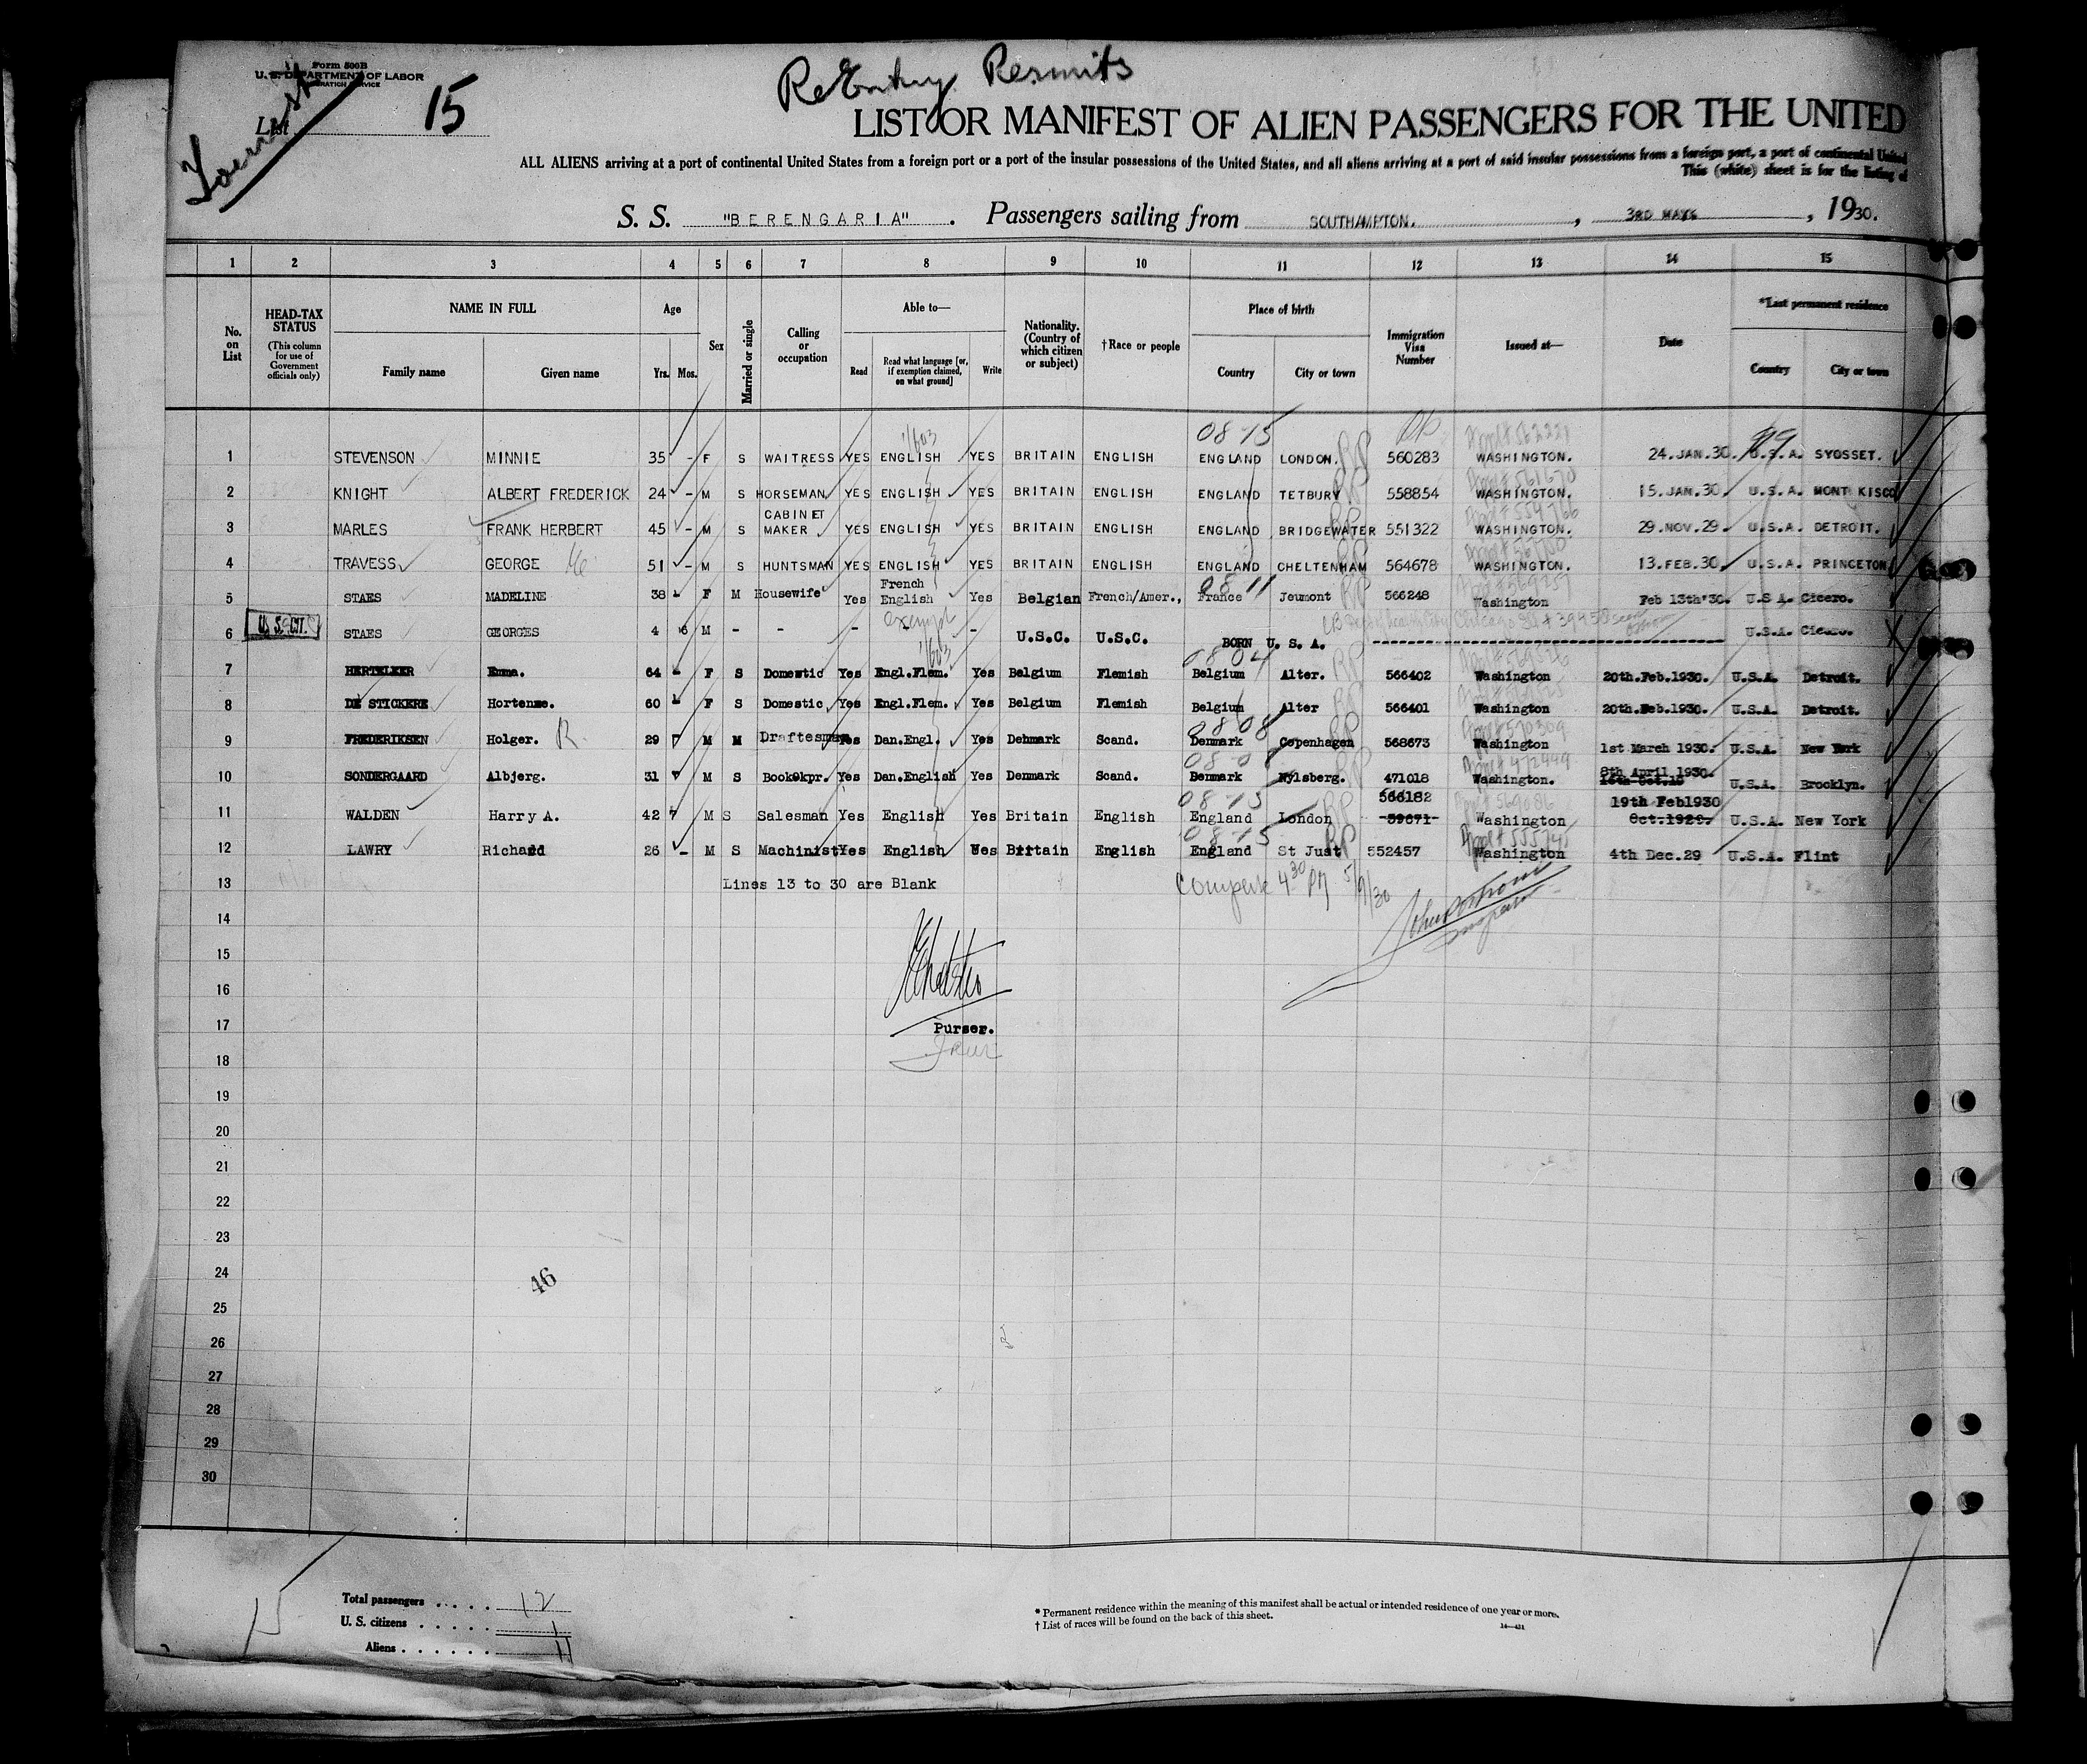 Form 500B
U. S. DEPARTMENT OF LABOR
IMMIGRATION SERVICE
List 15
Tourist
ReEntry Permits
LIST OR MANIFEST OF ALIEN PASSENGERS FOR THE UNITED
ALL ALIENS arriving at a port of continental United States from a foreign port or a port of the insular possessions of the United States, and all aliens arriving at a port of said insular possessions from a foreign port, a port of continental United
This (white) sheet is for the listing of
S. S. "BERENGARIA". Passengers sailing from SOUTHAMPTON, 3RD MAY, 1930.
1 2 3 4 5 6 7 8 9 10 11 12 13 14 15
No. on List
HEAD-TAX STATUS (This column for use of Government officials only)
NAME IN FULL Family name Given name
Age Yrs. Mos.
Sex
Married or single
Calling or occupation
Able to— Read Read what language [or, if exemption claimed, on what ground] Write
Nationality. (Country of which citizen or subject)
†Race or people
Place of birth Country City or town
Immigration Visa Number
Issued at—
Date
*Last permanent residence Country City or town
08 15 RP 99
1 STEVENSON MINNIE 35 - F S WAITRESS YES ENGLISH YES BRITAIN ENGLISH ENGLAND LONDON. RP 560283 WASHINGTON. 24.JAN.30. U.S.A. SYOSSET.
2 KNIGHT ALBERT FREDERICK 24 - M S HORSEMAN YES ENGLISH YES BRITAIN ENGLISH ENGLAND TETBURY RP 558854 WASHINGTON. 15.JAN.30. U.S.A. MONT KISCO
3 MARLES FRANK HERBERT 45 - M S CABINET MAKER YES ENGLISH YES BRITAIN ENGLISH ENGLAND BRIDGEWATER RP 551322 WASHINGTON. 29.NOV.29. U.S.A. DETROIT.
4 TRAVESS GEORGE 51 - M S HUNTSMAN YES ENGLISH YES BRITAIN ENGLISH ENGLAND CHELTENHAM RP 564678 WASHINGTON. 13.FEB.30. U.S.A. PRINCETON
08 11
5 STAES MADELINE 38 - F M Housewife Yes French English Yes Belgian French/Amer., France Jeumont RP 566248 Washington Feb 13th'30. U.S.A. Cicero.
exempt
6 U. S. CIT. STAES GEORGES 4 6 M - - - - U.S.C. U.S.C. BORN U. S. A. U.S.A. Cicero.
08 04
7 HERTELEER Emma. 64 - F S Domestic Yes Engl.Flem. Yes Belgium Flemish Belgium Alter. RP 566402 Washington 20th.Feb.1930. U.S.A. Detroit.
8 DE STICKERE Hortense. 60 F S Domestic Yes Engl.Flem. Yes Belgium Flemish Belgium Alter RP 566401 Washington 20th.Feb.1930. U.S.A. Detroit.
08 08
9 FREDERIKSEN Holger. R 29 M M Draftesman Yes Dan.Engl. Yes Denmark Scand. Denmark Copenhagen RP 568673 Washington 1st March 1930. U.S.A. New York
08 08
10 SONDERGAARD Albjerg. 31 M S Bookkpr. Yes Dan.English Yes Denmark Scand. Denmark Nylsberg. RP 471018 Washington. 8th April 1930. U.S.A. Brooklyn.
08 15 566182 19th Feb1930
11 WALDEN Harry A. 42 M S Salesman Yes English Yes Britain English England London RP 59671 Washington Oct.1929. U.S.A. New York
08 15
12 LAWRY Richard 26 - M S Machinist Yes English Yes Britain English England St Just RP 552457 Washington 4th Dec.29 U.S.A. Flint
13 Lines 13 to 30 are Blank 4 30 PM 5/9/30
14
15
16
17 Purser.
18
19
20
21
22
23
24 46
25
26
27
28
29
30
15
Total passengers . . . . . 12
U. S. citizens . . . . . 1
Aliens . . . . . . 11
* Permanent residence within the meaning of this manifest shall be actual or intended residence of one year or more.
† List of races will be found on the back of this sheet.
14—431